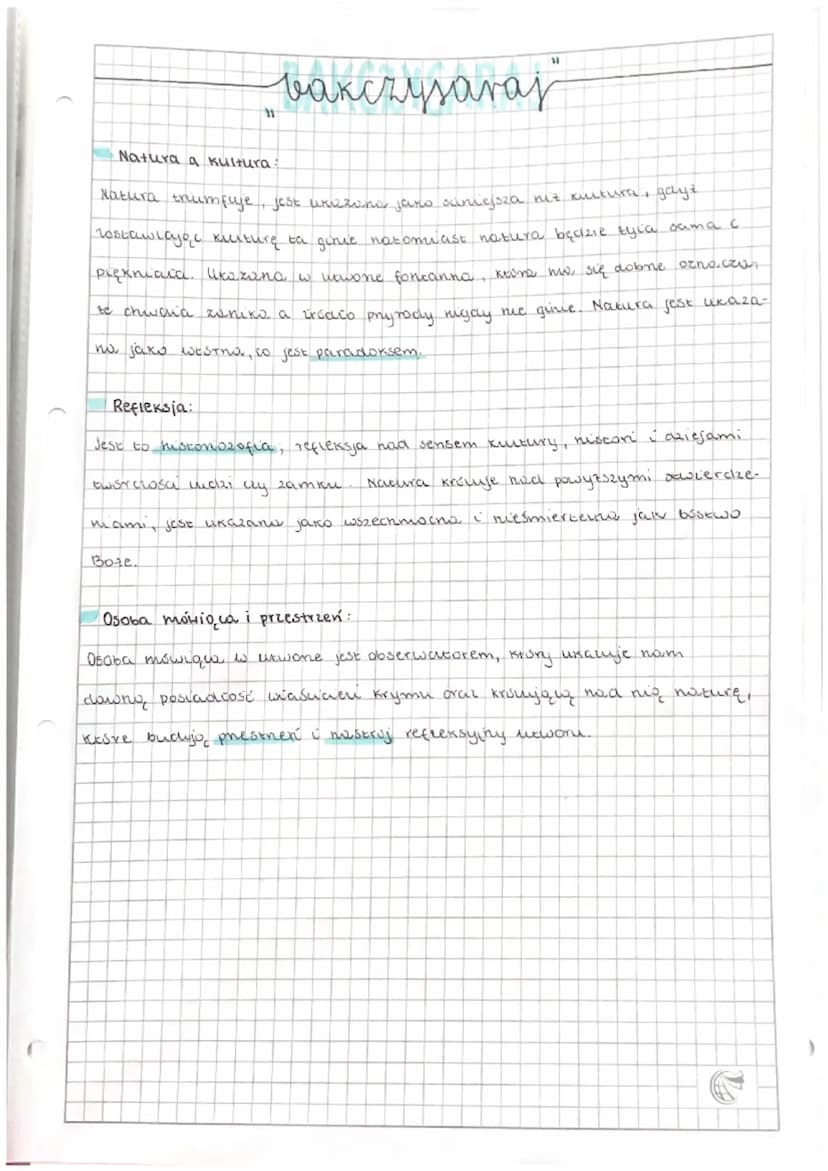 BAKCZYSARAJ
„bakczysaraj"
Natura a kultura:
Natura triumfuje, jest ukazana jako silniejsza niż kultura, gdyż
zostawiając kulturę ta ginie natomiast natura będzie żyła sama i
piękniała. Ukazana w utworze fontanna, która ma się dobrze oznacza,
że chwała zanika a źródło przyrody nigdy nie ginie. Natura jest ukaza-
na jako wieczna, co jest paradoksem.
Refleksja:
Jest to historiozofia, refleksja nad sensem kultury, histori i dziejami
twórczości ludzi czy zamku. Natura króluje nad powyższymi stwierdze-
niami, jest ukazana jako wszechmocna i nieśmiertelna jak bóstwo
Boże.
Osoba mówiąca i przestrzeń:
Osoba mówiąca w utworze jest obserwatorem, który ukazuje nam
dawną posiadłość właścicieli Krymu oraz królującą nad nią naturę,
które budują przestrzeń i nastrój refleksyjny utworu.